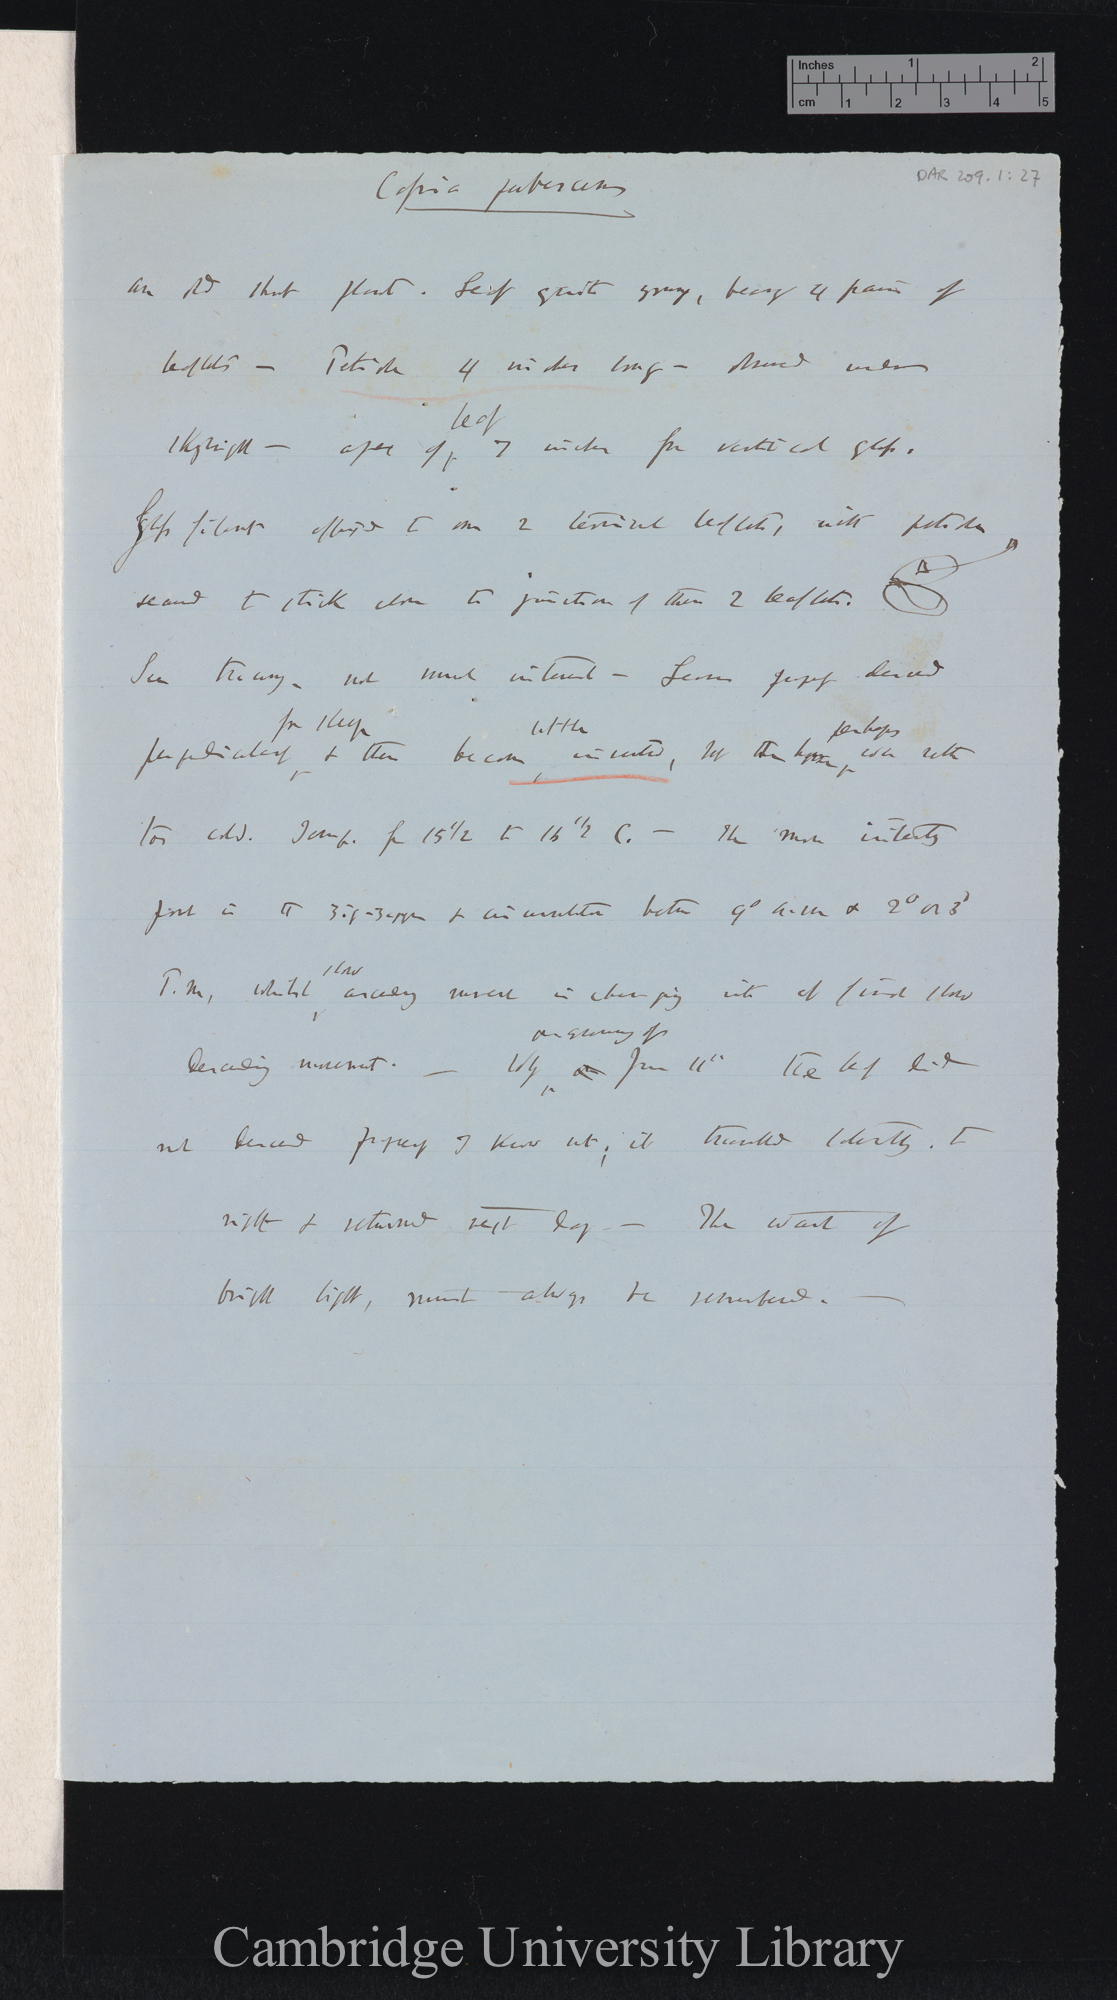 Inches 1 2
cm 1 2 3 4 5
DAR 209.1:27
Cassia pubescens
An old short plant. Leaf quite young, bearing 4 pairs of
leaflets — Petiole 4 inches long — observed under
leaf
skylight — apex of 7 inches from vertical glass.
Glass filament affixed to one 2 terminal leaflets, with petiole
secured to stick close to junction of these 2 leaflets.
See tracing — not much interest — Leaves descend
for sleep little perhaps
perpendicularly & then become inverted, but the were rather
too cold. Temp. from 15 1/2 to 16 1/2 C. — The more interesting
point is the zig-zagging & circumnutation between 9° a.m. & 2° or 3°
slow
P.M, whilst ascending movement is changing into afternoon slow
descending movement. —
from 11th the leaf did
not descend properly I know not; it travelled to
right & returned next day — The want of
bright light, must always be remembered. —
Cambridge University Library